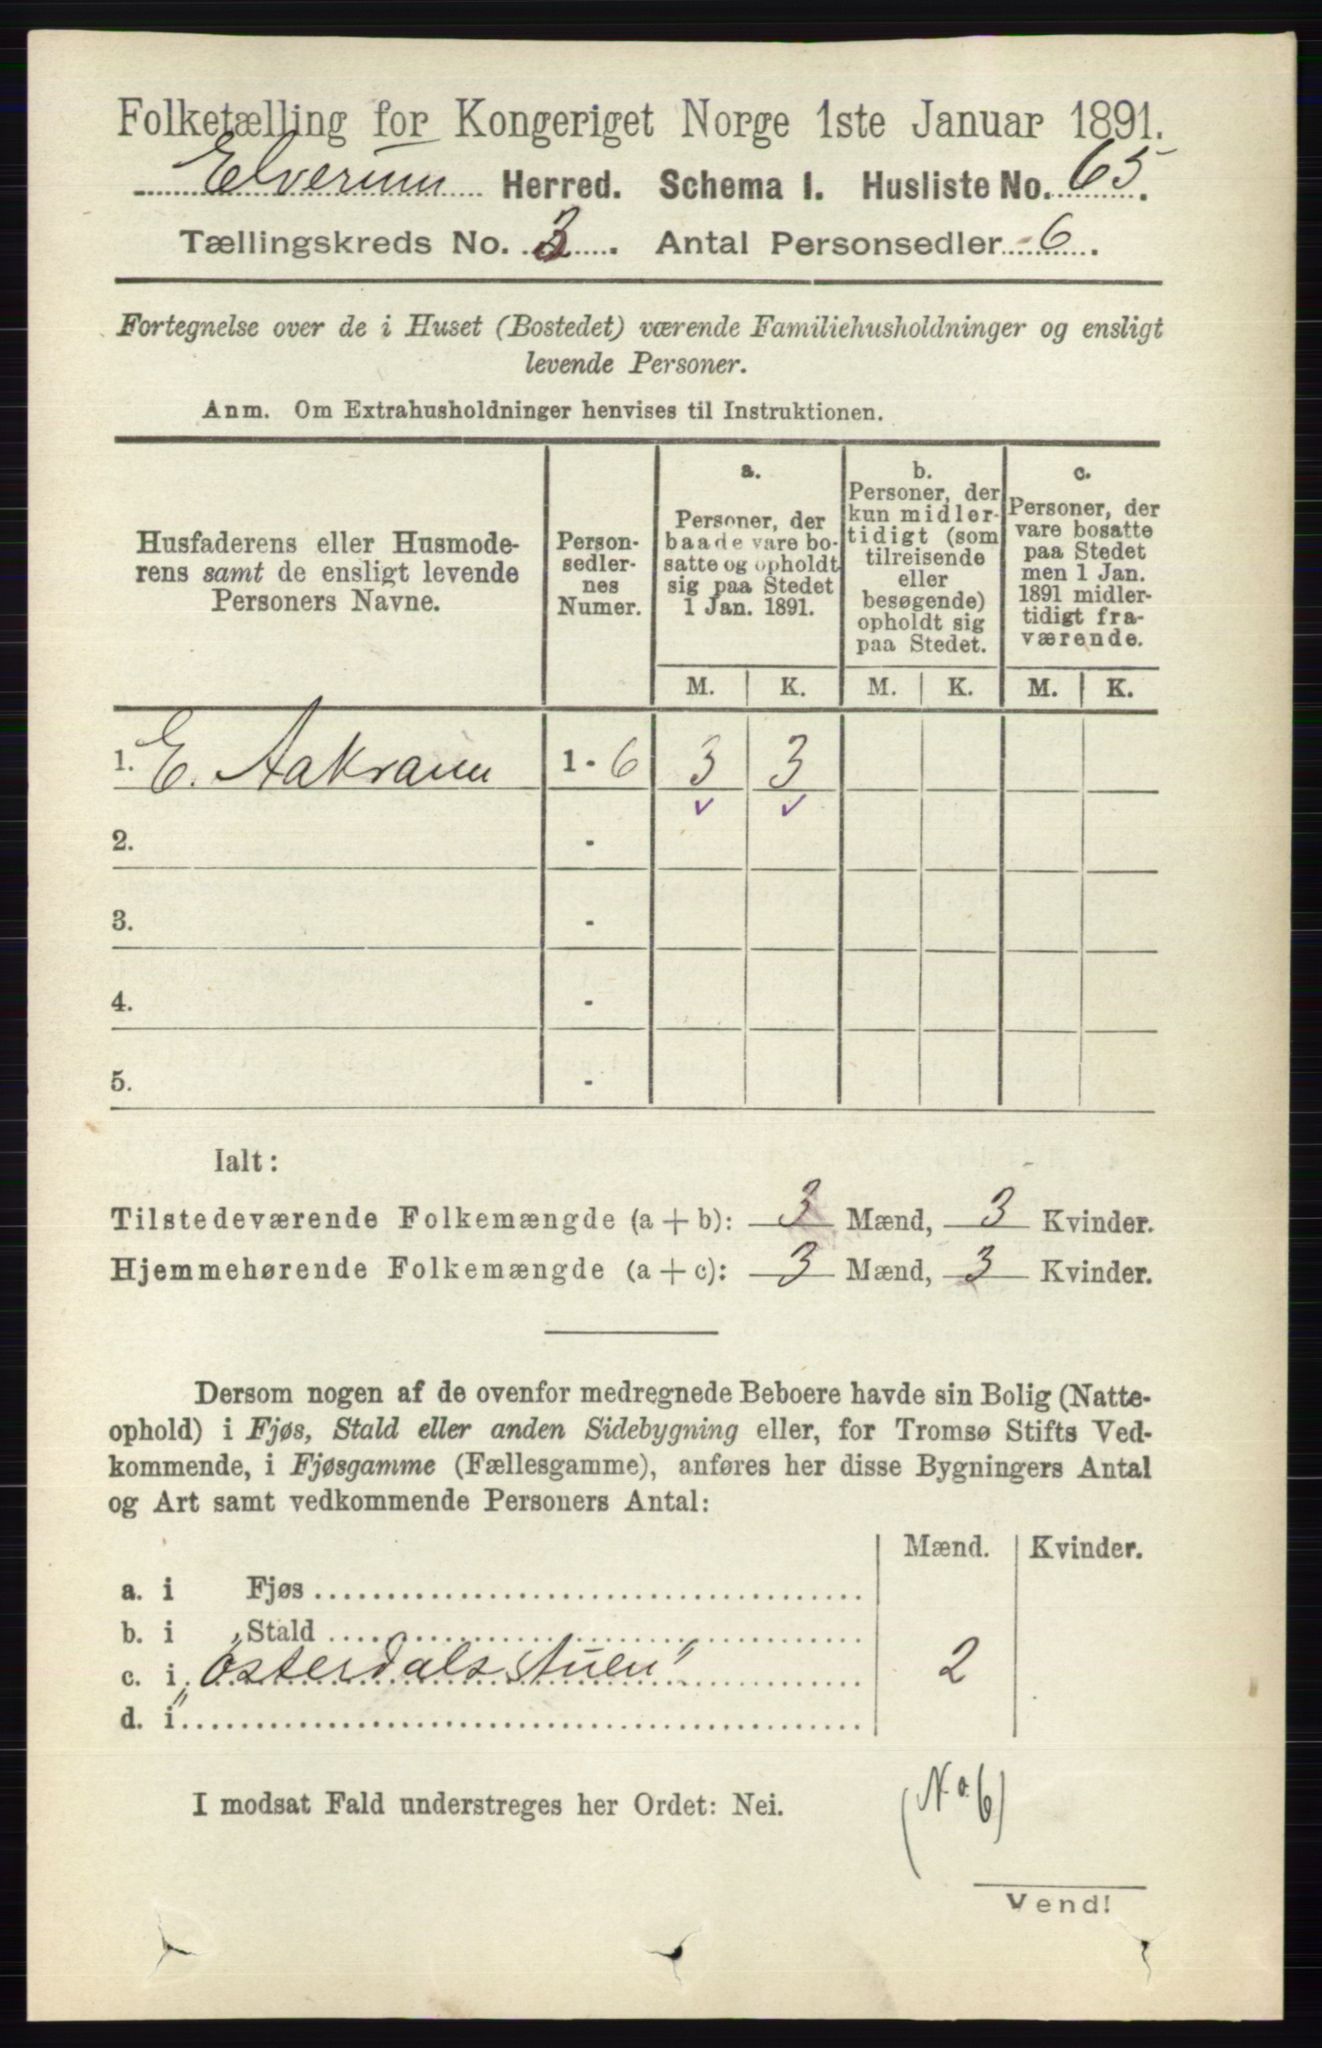 Folketælling for Kongeriget Norge 1ste Januar 1891.
Elverum Herred. Schema 1. Husliste No. 65.
Tællingskreds No. 3. Antal Personsedler 6.
Fortegnelse over de i Huset (Bostedet) værende Familiehusholdninger og ensligt
levende Personer.
Anm. Om Extrahusholdninger henvises til Instruktionen.
Husfaderens eller Husmode-
rens samt de ensligt levende
Personers Navne.
Person-
sedler-
nes
Numer.
a.
Personer, der
baade vare bo-
satte og opholdt
sig paa Stedet
1 Jan. 1891.
b.
Personer, der
kun midler-
tidigt (som
tilreisende
eller
besøgende)
opholdt sig
paa Stedet.
c.
Personer, der
vare bosatte
paa Stedet
men 1 Jan.
1891 midler-
tidigt fra-
værende.
M. K. M. K. M. K.
1. E. Aakrann 1 - 6 3 3
2. -
3. -
4. -
5. -
Ialt:
Tilstedeværende Folkemængde (a + b): 3 Mænd, 3 Kvinder.
Hjemmehørende Folkemængde (a + c): 3 Mænd, 3 Kvinder.
Dersom nogen af de ovenfor medregnede Beboere havde sin Bolig (Natte-
ophold) i Fjøs, Stald eller anden Sidebygning eller, for Tromsø Stifts Ved-
kommende, i Fjøsgamme (Fællesgamme), anføres her disse Bygningers Antal
og Art samt vedkommende Personers Antal:
Mænd. Kvinder.
a. i Fjøs
b. i Stald
c. i "Østerdalsstuen" 2
d. i
I modsat Fald understreges her Ordet: Nei.
(No. 6)
Vend!